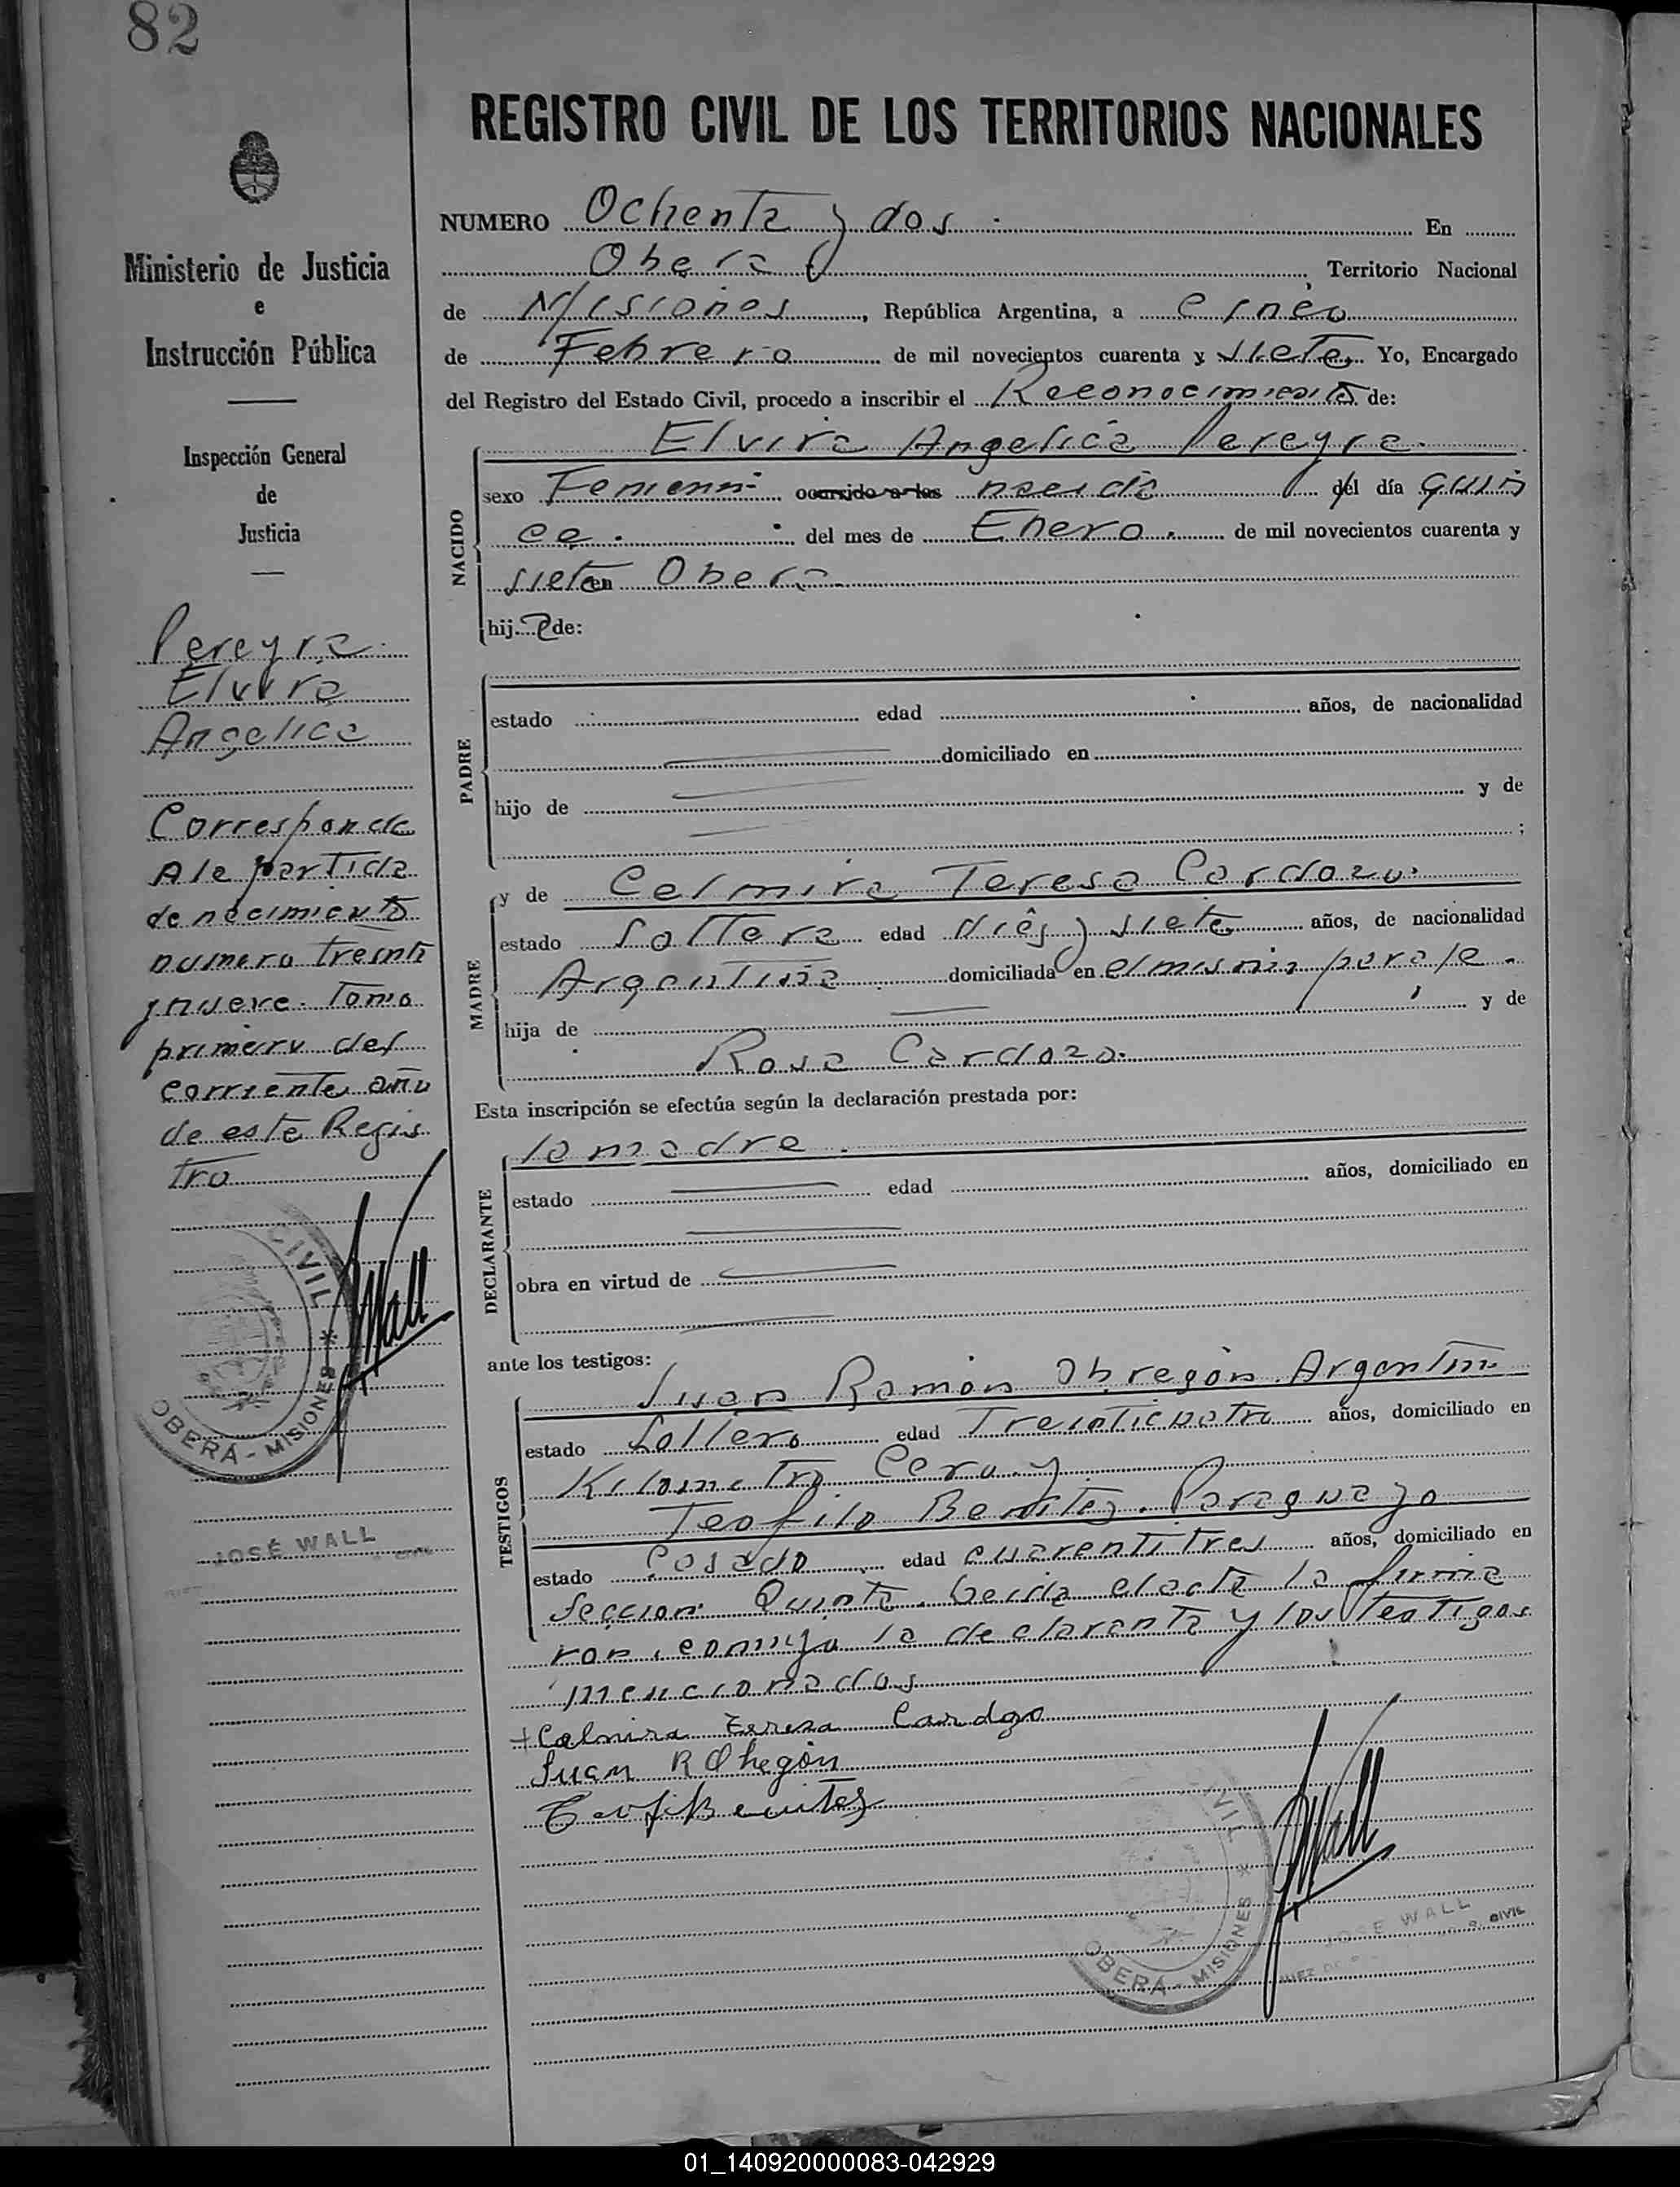 82
REGISTRO CIVIL DE LOS TERRITORIOS NACIONALES
Ministerio de Justicia
e
Instrucción Pública
Inspección General
de
Justicia
Pereyra
Elvira
Angelica
Corresponde
A la partida
de nacimiento
numero treinti
ynueve. Tomo
primero del
corriente año
de este Regis
tro
CIVIL
OBERÁ - MISIONES
JWall
JOSÉ WALL
NUMERO Ochenta y dos. En
Obera, Territorio Nacional
de Misiones, República Argentina, a cinco
de Febrero de mil novecientos cuarenta y siete. Yo, Encargado
del Registro del Estado Civil, procedo a inscribir el Reconocimiento de:
NACIDO
Elvira Angelica Pereyra.
sexo Femenino ocurrido a las nacida del día quin
ce. del mes de Enero. de mil novecientos cuarenta y
siete en Obera.
hij a de:
PADRE
estado edad años, de nacionalidad
domiciliado en
hijo de y de
;
MADRE
y de Celmira Teresa Cardozo.
estado Soltera edad diés y siete años, de nacionalidad
Argentina domiciliada en el mismo paraje.
hija de y de
Rosa Cardozo.
Esta inscripción se efectúa según la declaración prestada por:
DECLARANTE
la madre.
estado edad años, domiciliado en
obra en virtud de
ante los testigos:
TESTIGOS
Juan Ramón Obregón. Argentino
estado Soltero edad Treinticuatro años, domiciliado en
Kilometro Cero. y
Teofilo Benitez. Paraguayo
estado Casado edad cuarentitres años, domiciliado en
Seccion Quinta. Leida el acta la firma
ron conmigo la declaranta y los testigos
mencionados
+Celmira Teresa Cardozo
Juan R Obregón
Teof Benitez
OBERÁ - MISIONES
JWall
JOSÉ WALL
CIVIL
01_140920000083-042929